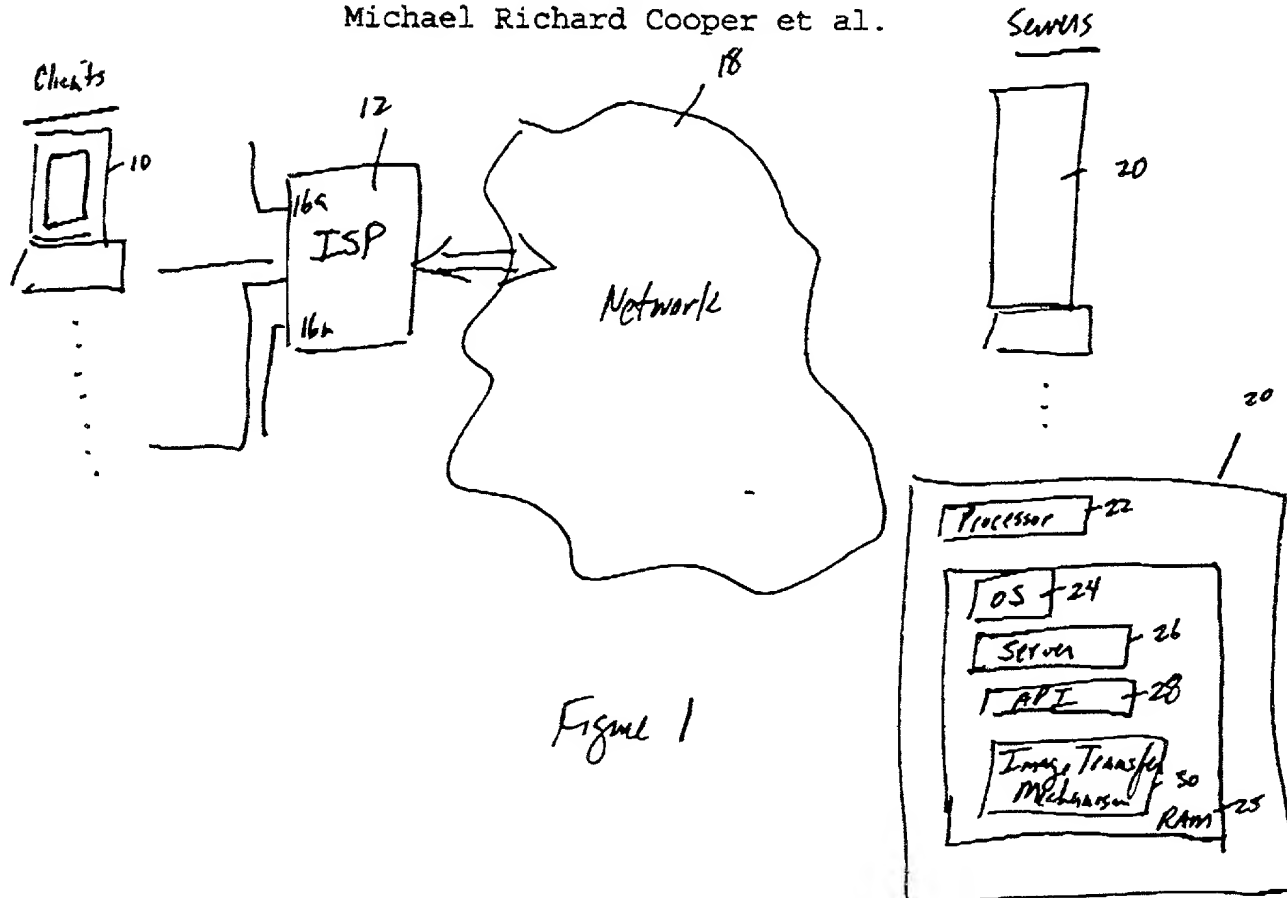 Michael Richard Cooper et al.
Servers
Clients
10
12
18
16a
ISP
16n
Network
20
20
Processor 22
OS 24
Server 26
API 28
Image Transfer
Mechanism 30
RAM 25
Figure 1